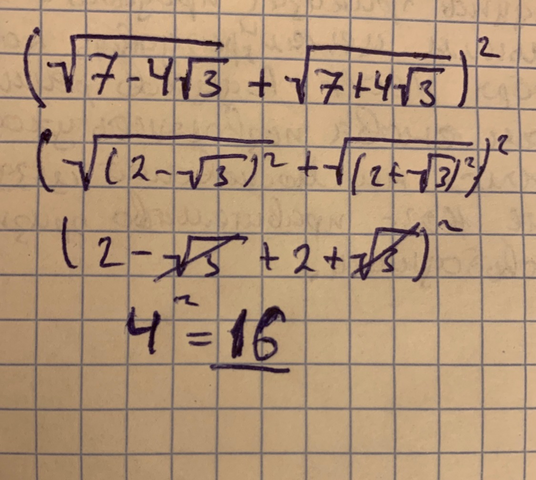 (√(7-4√3) + √(7+4√3))²
(√((2-√3)²) + √((2+√3)²))²
(2-√3 + 2+√3)²
4² = 16